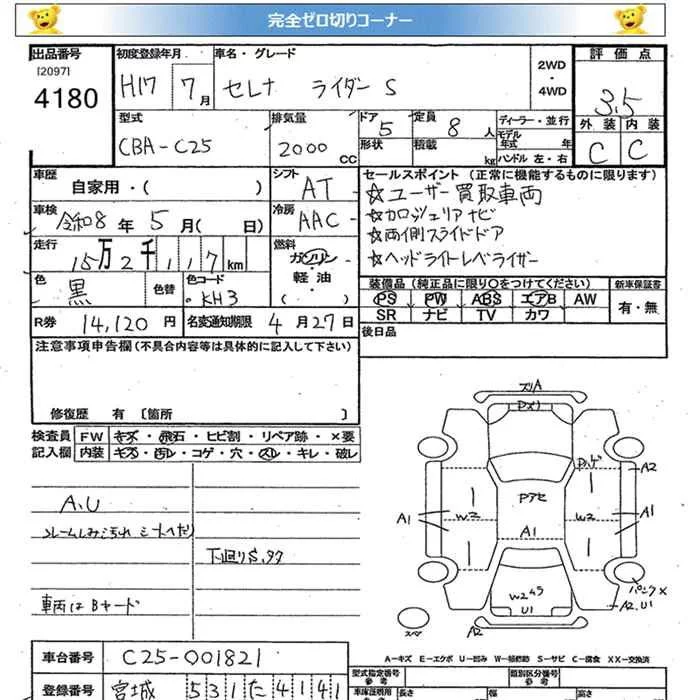 完全ゼロ切りコーナー
出品番号 初度登録年月 車名・グレード 2WD 評価点
[2097] H17 7月 セレナ ライダーS ・ 3.5
4180 4WD
型式 排気量 ドア 定員 ディーラー・並行 外装 内装
CBA-C25 2000 CC 5 8 人 モデル年式 年 C C
形状 積載 kg ハンドル 左・右
車歴 自家用・( ) シフト AT セールスポイント (正常に機能するものに限ります)
☆ユーザー買取車両
車検 令和8年 5月( 日) 冷房 AAC ☆カロッジェリアナビ
☆両側スライドドア
走行 15万2千117km 燃料 ガソリン ☆ヘッドライトレベライザー
軽油
色 黒 色替 色コード KH3 ( ) 装備品 (純正品に限り○をつけてください) 新車保証書
PS PW ABS エアB AW 有・無
R券 14,120円 名変通知期限 4月27日 SR ナビ TV カワ
注意事項申告欄(不具合内容等は具体的に記入して下さい) 後日品
修復歴 有 [箇所 ]
検査員 FW キズ・飛石・ヒビ割・リペア跡・×要
記入欄 内装 キズ・汚レ・コゲ・穴・スレ・キレ・破レ
A,U
シートヘタリ
下廻りS,サ
車両はBヤード
ズリA
A2
Pアセ
A1 W2 W2 A1
A1
W2
U1
パンク×
A2,U1
スペア A2
A-キズ E-エクボ U-凹み W-補修跡 S-サビ C-腐食 XX-交換済
車台番号 C25-001821
登録番号 宮城 531 た 4141
型式指定番号 参考 類別区分番号 参考